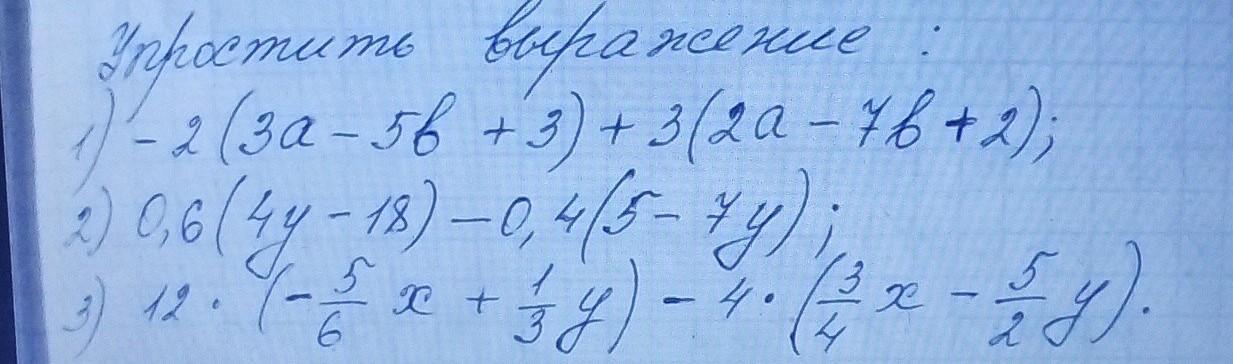 Упростить выражение :
1) -2(3a - 5b + 3) + 3(2a - 7b + 2);
2) 0,6(4y - 18) - 0,4(5 - 7y);
3) 12 · (-5/6 x + 1/3 y) - 4 · (3/4 x - 5/2 y).